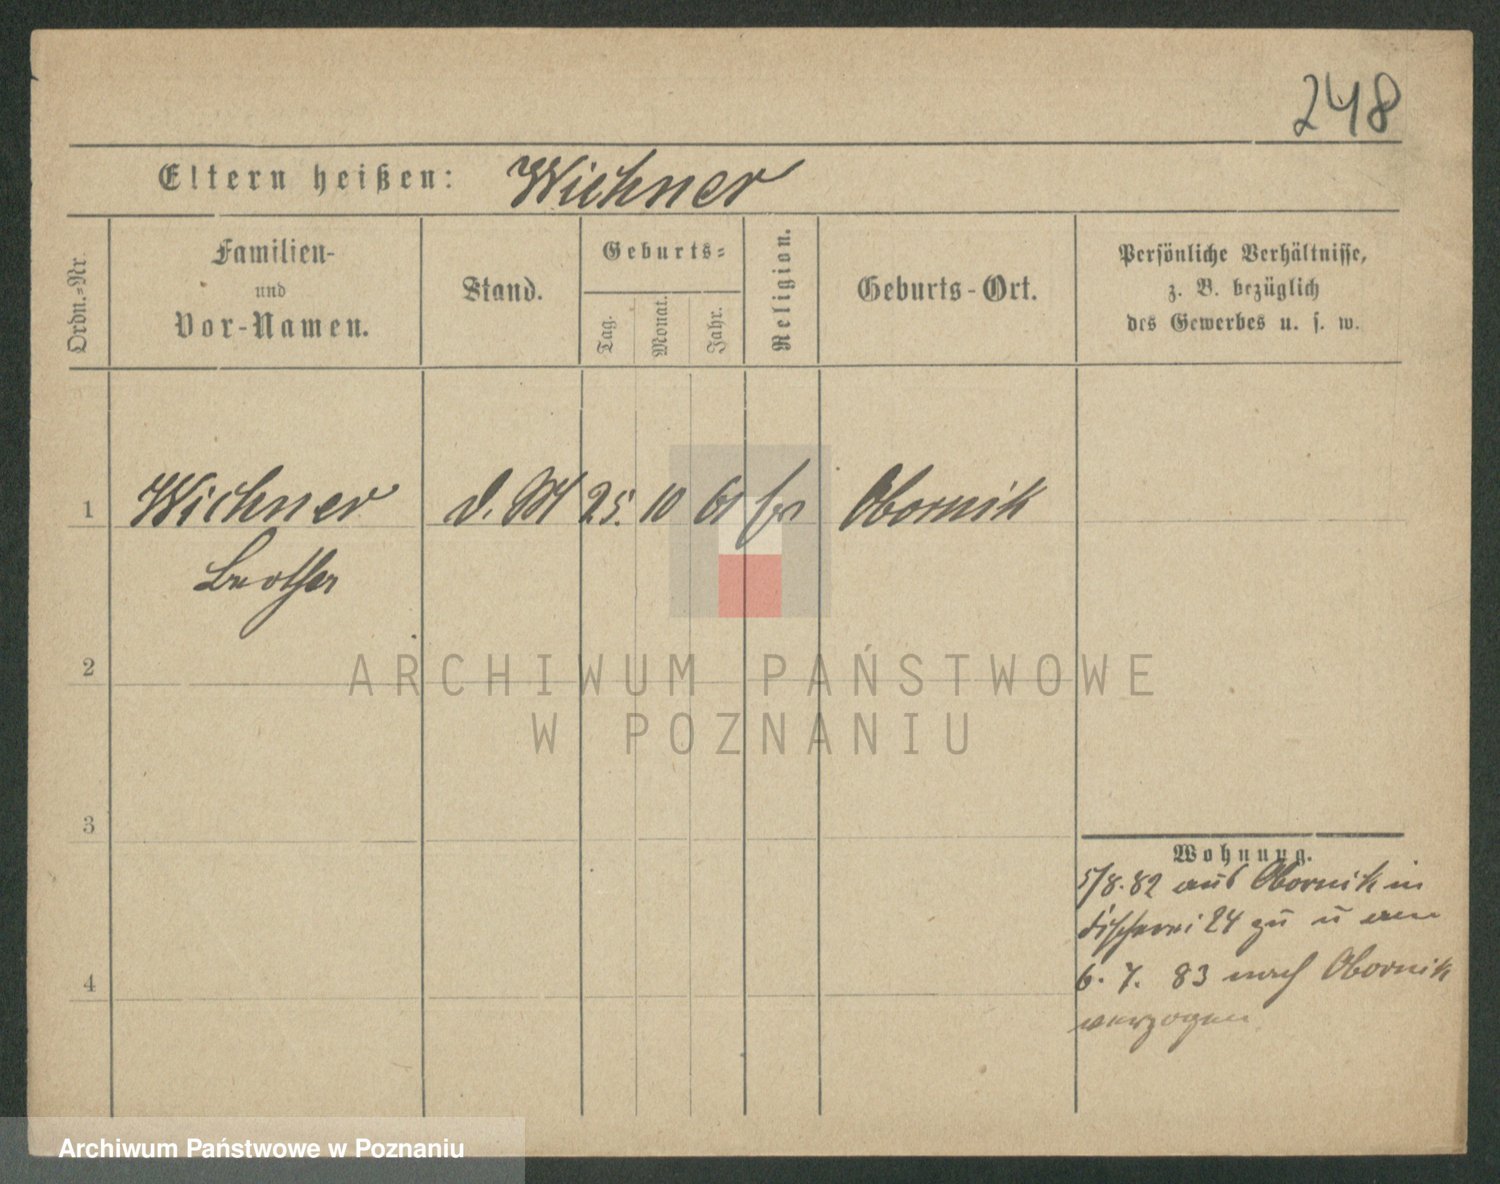 248
Eltern heißen: Wichner
Ordn.-Nr.
Familien-
und
Vor-Namen.
Stand.
Geburts-
Tag.
Monat.
Jahr.
Religion.
Geburts-Ort.
Persönliche Verhältnisse,
z. B. bezüglich
des Gewerbes u. s. w.
1 Wichner d. M 25. 10 61 Obornik
2
3
4
Wohnung.
5/8.82 aus Obornik in
Fischerei 24 zu u am
6. 7. 83 nach Obornik
verzogen
ARCHIWUM PAŃSTWOWE
W POZNANIU
Archiwum Państwowe w Poznaniu